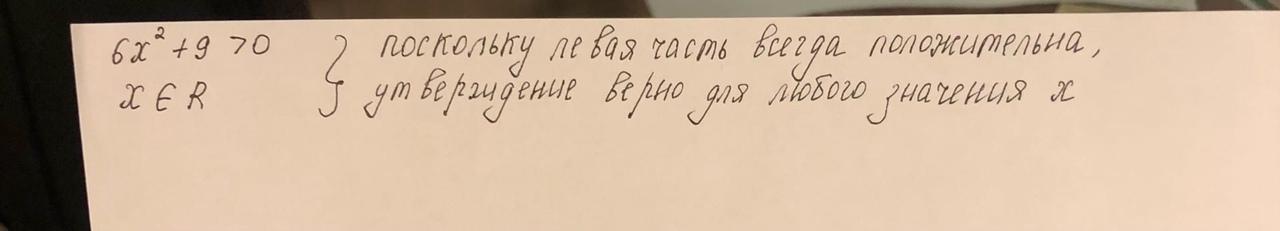 6x² + 9 > 0 } поскольку левая часть всегда положительна,
x ∈ R } утверждение верно для любого значения x